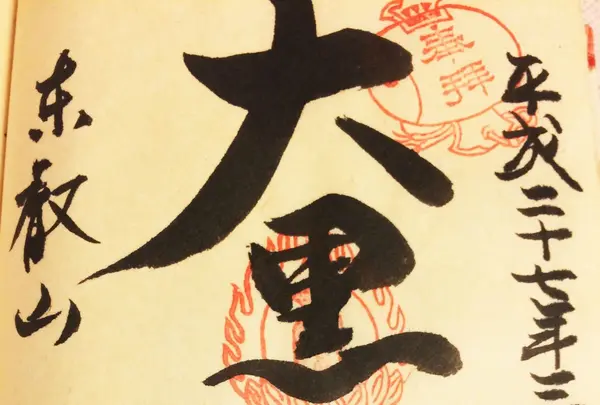 平成二十七年
奉拝
大黒
东叡山